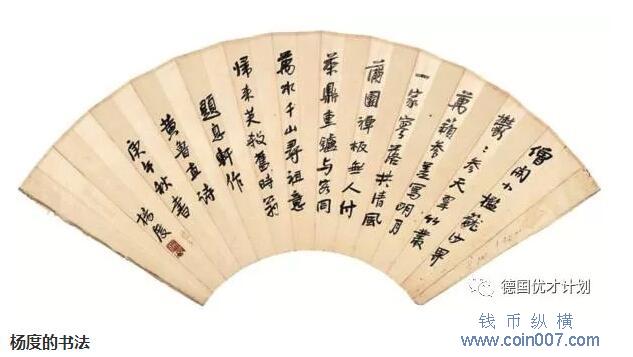 僧開小檻籠沙界
鬱々参天翠竹叢
萬籟参差寫明月
一家寥落共清風
蒲團禪板無人付
茶鼎熏爐与客同
萬水千山尋祖意
歸來笑殺舊時翁
題息軒作
黃魯直詩
庚午秋書
楊度
德国优才计划
钱币纵横
www.coin007.com
杨度的书法